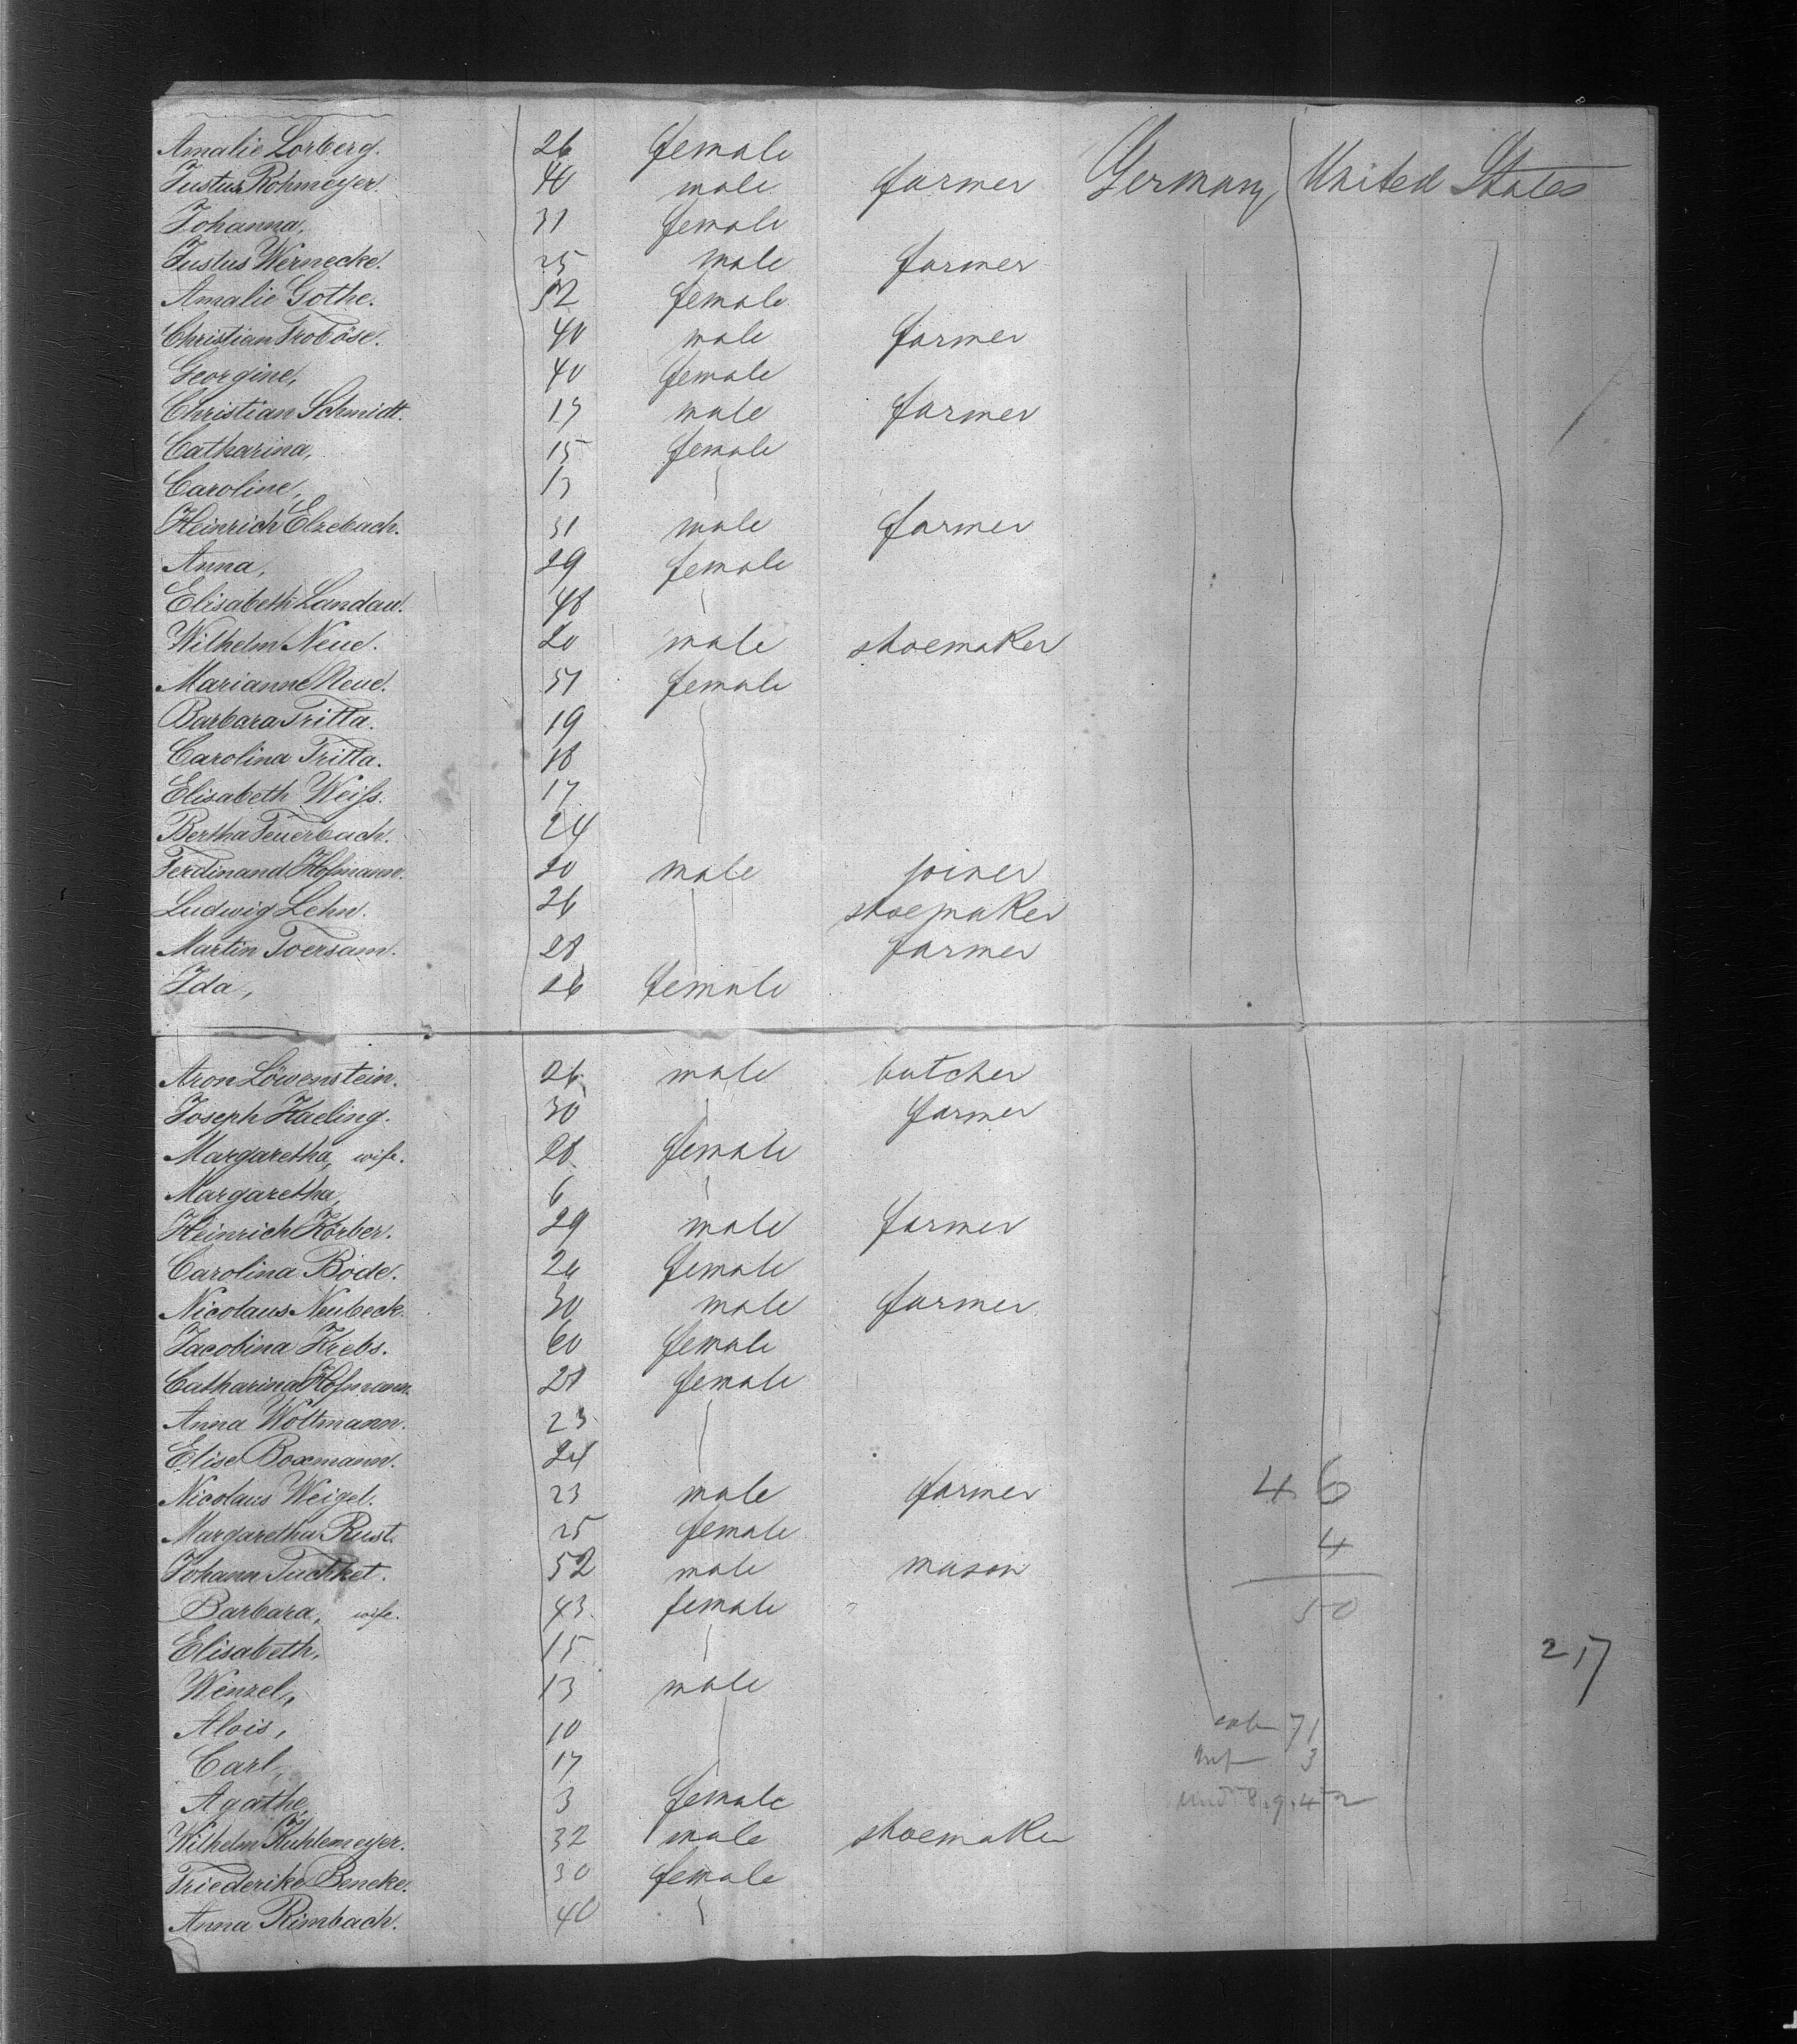 Amalie Lorberg. 26 female
Justus Rohmeyer. 40 male farmer Germany United States
Johanna, 31 female
Justus Wernecke. 25 male farmer
Amalie Gothe. 52 female
Christian Froböse. 40 male farmer
Georgine, 40 female
Christian Schmidt. 19 male farmer
Catharina, 15 female
Caroline, 13
Heinrich Elzebach. 31 male farmer
Anna, 29 female
Elisabeth Landau. 48
Wilhelm Neue. 20 male shoemaker
Marianne Neue. 51 female
Barbara Tritta. 19
Carolina Tritta. 18
Elisabeth Weiſs. 17
Bertha Feuerbach. 24
Ferdinand Hofmann. 20 male joiner
Ludwig Lehn. 26 shoemaker
Martin Foersam. 28 farmer
Ida, 26 female
Aron Löwenstein. 26 male butcher
Joseph Haeling. 30 farmer
Margaretha, wife. 28 female
Margaretha, 6
Heinrich Körber. 29 male farmer
Carolina Bode. female
Nicolaus Neubeck. 30 male farmer
Jacobina Krebs. 60 female
Catharina Hofmann. female
Anna Woltmann. 23
Elise Boxmann. 24
Nicolaus Weigel. 23 male farmer 46
Margaretha Rust. 25 female 4
Johann Tuchket. 52 male mason
Barbara, wife. 43 female 50
Elisabeth, 15 217
Wenzel, 13 male
Alois, 10 71
Carl, 17 3
Agathe, 3 female
Wilhelm Kuhlemeyer. 32 male shoemaker
Friederike Beneke. 30 female
Anna Rimbach. 40